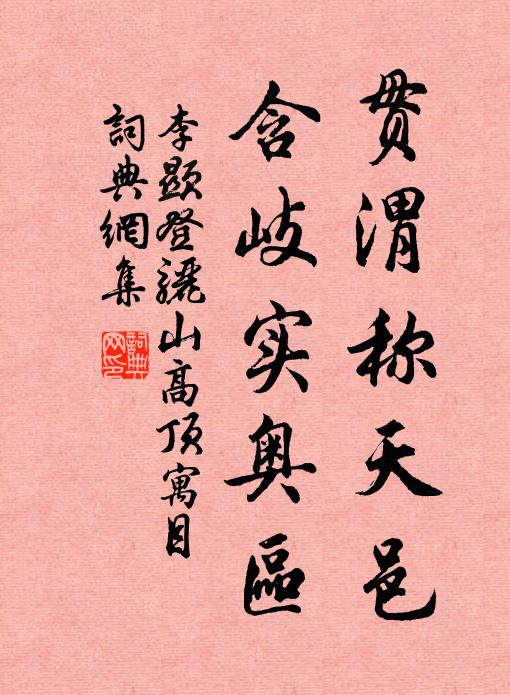 贯渭称天邑
含岐实奥區
李顯登驪山高顶寓目
詞典網集
詞典网印